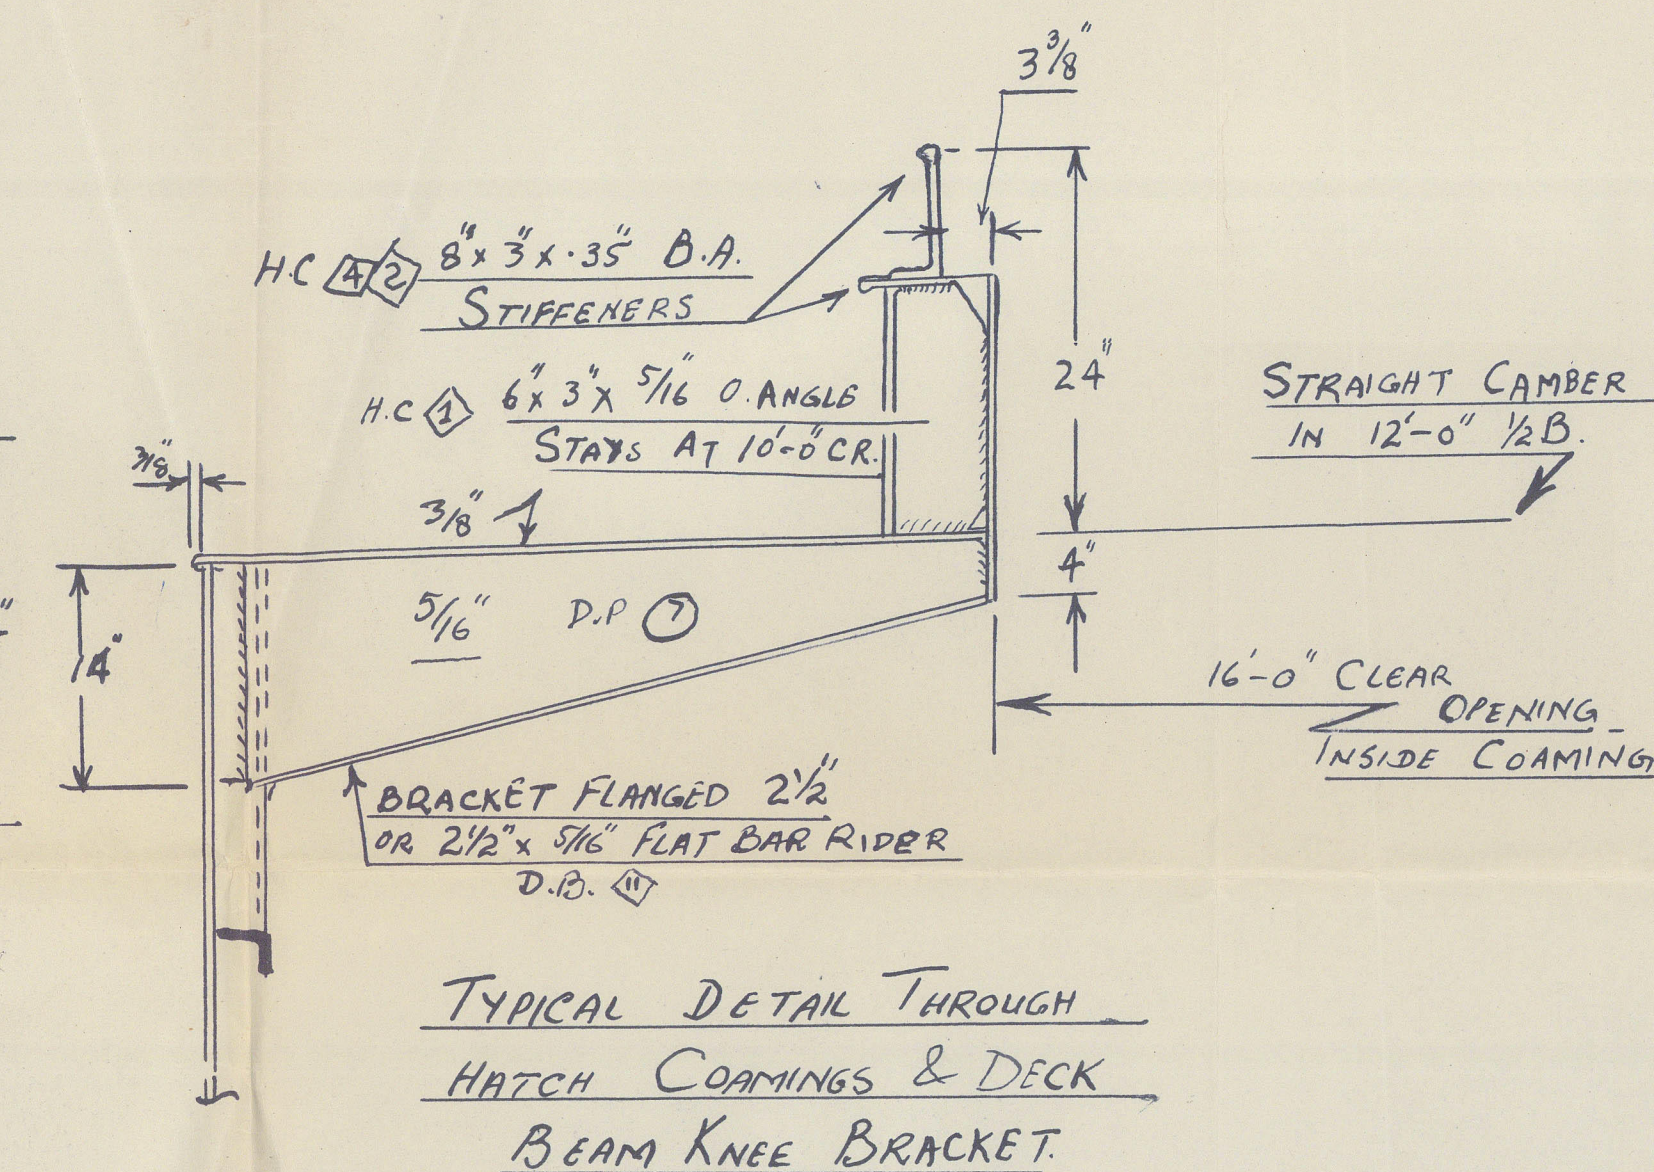 3 3/8"
H.C 4 2 8" x 3" x .35" B.A.
STIFFENERS
24"
H.C 1 6" x 3" x 5/16" O. ANGLE
STAYS AT 10'-0" CR.
STRAIGHT CAMBER
IN 12'-0" 1/2 B.
3/8"
3/8"
4"
14"
5/16" D.P 7
16'-0" CLEAR
OPENING
INSIDE COAMING
BRACKET FLANGED 2 1/2"
OR 2 1/2" x 5/16" FLAT BAR RIDER
D.B. 11
TYPICAL DETAIL THROUGH
HATCH COAMINGS & DECK
BEAM KNEE BRACKET.